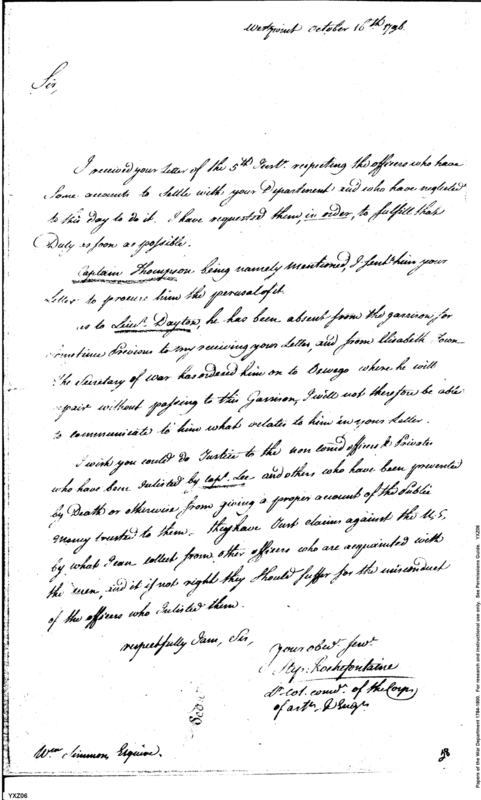 Westpoint October 16th 1796.
Sir,
I received your letter of the 5th Inst. respecting the officers who have
Some accounts to Settle with your Department and who have neglected
to this day to do it. I have requested them, in order, to fulfill that
Duty as soon as possible.
Captain Thompson being namely mentioned, I sent him your
Letter to procure him the perusal of it
as to Lieut. Dayton, he has been absent from the garrison for
Sometime Previous to my receiving your Letter, and from Elisabeth Town
The Secretary of war has ordered him on to Oswego where he will
repair without passing to this Garrison, I will not therefore be able
to communicate to him what relates to him in your Letter.
I wish you could do Justice to the non comd officers & Privates
who have been Inlisted by Capt. Lee and others who have been prevented
by Death or otherwise, from giving a proper account of the Public
money trusted to them. they have Just claims against the U.S,
by what I can collect from other officers who are acquainted with
the men, and it if not right they Should Suffer for the misconduct
of the officers who Inlisted them.
respectfully I am, Sir,
your obet. Servt.
Step. Rochefontaine
Lt. Col. comdt. of the Corps
of arts. & Engrs
Wm Simmons Esquire.
YXZ06
Papers of the War Department 1784-1800. For research and instructional use only. See Permissions Guide. YXZ06